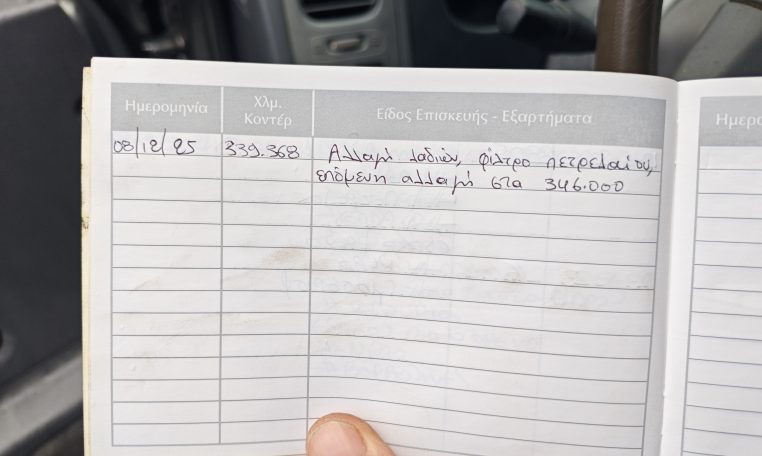 Ημερομηνία
Χλμ.
Κοντέρ
Είδος Επισκευής - Εξαρτήματα
Ημερο
08/12/25 339.368 Αλλαγή λαδιών, φίλτρο πετρελαίου,
επόμενη αλλαγή στα 346.000